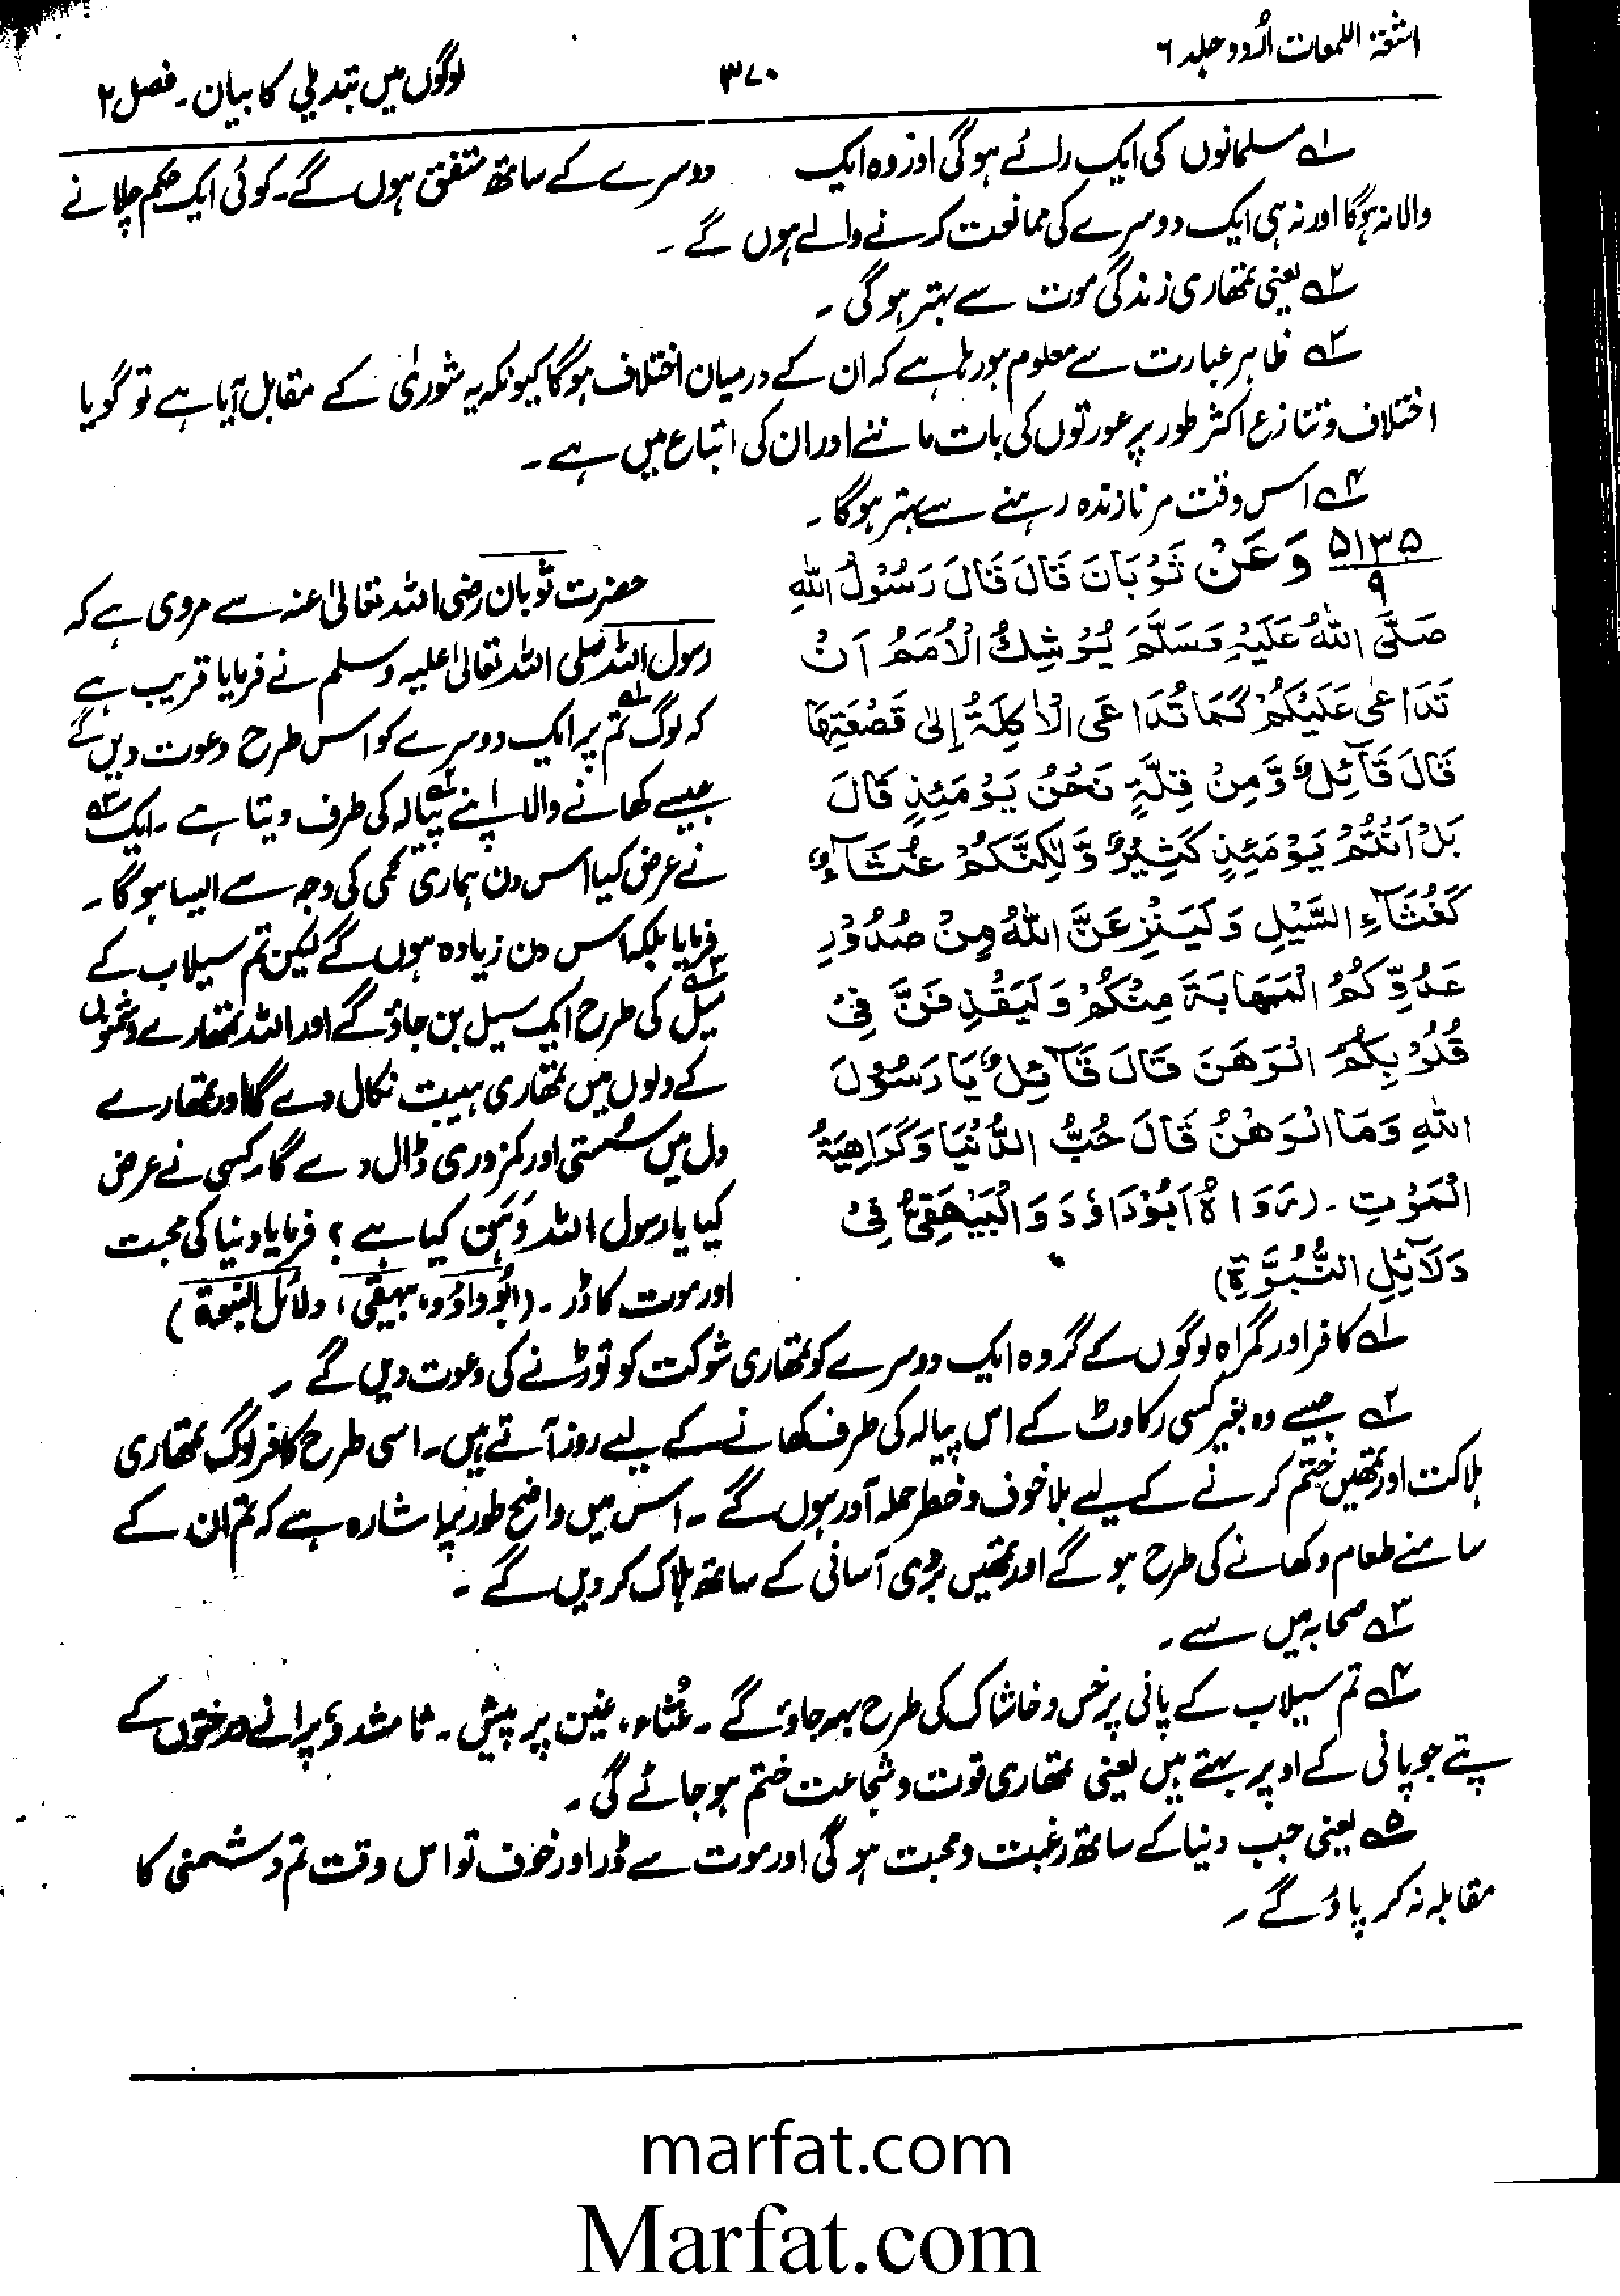 اشعۃ اللمعات اُردو جلد ۶
۳۷۰
لوگوں میں تبدیلی کا بیان۔ فصل ۲
۱ے مسلمانوں کی ایک رائے ہوگی اور وہ ایک دوسرے کے ساتھ متفق ہوں گے۔ کوئی ایک حکم چلانے
والا نہ ہوگا اور نہ ہی ایک دوسرے کی ممانعت کرنے والے ہوں گے۔
۲ے یعنی تمھاری زندگی موت سے بہتر ہوگی۔
۳ے ظاہر عبارت سے معلوم ہو رہا ہے کہ ان کے درمیان اختلاف ہوگا کیونکہ یہ شوریٰ کے مقابل آیا ہے تو گویا
اختلاف و تنازع اکثر طور پر عورتوں کی بات ماننے اور ان کی اتباع میں ہے۔
۴ے اس وقت مرنا زندہ رہنے سے بہتر ہوگا۔
۵۱۳۵
۹
وَعَنْ ثَوْبَانَ قَالَ قَالَ رَسُوْلُ اللّٰهِ
صَلَّى اللّٰهُ عَلَيْهِ وَسَلَّمَ يُوْشِكُ الْاُمَمُ اَنْ
تَدَاعٰى عَلَيْكُمْ كَمَا تُدَاعَى الْاٰكِلَةُ اِلٰى قَصْعَتِهَا
قَالَ قَآئِلٌ وَّمِنْ قِلَّةٍ نَحْنُ يَوْمَئِذٍ قَالَ
بَلْ اَنْتُمْ يَوْمَئِذٍ كَثِيْرٌ وَّلٰكِنَّكُمْ غُثَآءٌ
كَغُثَآءِ السَّيْلِ وَلَيَنْزِعَنَّ اللّٰهُ مِنْ صُدُوْرِ
عَدُوِّكُمُ الْمَهَابَةَ مِنْكُمْ وَلَيَقْذِفَنَّ فِيْ
قُلُوْبِكُمُ الْوَهَنَ قَالَ قَآئِلٌ يَا رَسُوْلَ
اللّٰهِ وَمَا الْوَهْنُ قَالَ حُبُّ الدُّنْيَا وَكَرَاهِيَةُ
الْمَوْتِ۔ (رَوَاهُ اَبُوْدَاؤدَ وَالْبَيْهَقِيُّ فِيْ
دَلَآئِلِ النُّبُوَّةِ)
حضرت ثوبان رضی اللہ تعالیٰ عنہ سے مروی ہے کہ
رسول اللہ صلی اللہ تعالیٰ علیہ وسلم نے فرمایا قریب ہے
کہ لوگ تم پر ۱ے ایک دوسرے کو اس طرح دعوت دیں گے
جیسے کھانے والا اپنے پیالہ ۲ے کی طرف دیتا ہے۔ ایک ۳ے
نے عرض کیا اس دن ہماری کمی کی وجہ سے ایسا ہوگا۔
فرمایا بلکہ اس دن زیادہ ہوں گے لیکن تم سیلاب کے
میل ۴ے کی طرح ایک سیل بن جاؤ گے اور اللہ تمھارے دشمنوں
کے دلوں میں تمھاری ہیبت نکال دے گا اور تمھارے
دل میں سُستی اور کمزوری ڈال دے گا۔ کسی نے عرض
کیا یا رسول اللہ وَہَن کیا ہے؟ فرمایا دنیا کی محبت
اور موت کا ڈر۔ (ابوداؤد، بیہقی، دلائل النبوۃ)
۱ے کافر اور گمراہ لوگوں کے گروہ ایک دوسرے کو تمھاری شوکت کو توڑنے کی دعوت دیں گے۔
۲ے جیسے وہ بغیر کسی رکاوٹ کے اس پیالہ کی طرف کھانے کے لیے روز آتے ہیں۔ اسی طرح کافر لوگ تمھاری
ہلاکت اور تمھیں ختم کرنے کے لیے بلا خوف و خطر حملہ آور ہوں گے۔ اس میں واضح طور پر اشارہ ہے کہ تم ان کے
سامنے طعام و کھانے کی طرح ہو گے اور تمھیں بڑی آسانی کے ساتھ ہلاک کر دیں گے۔
۳ے صحابہ میں سے۔
۴ے تم سیلاب کے پانی پر خس و خاشاک کی طرح بہہ جاؤ گے۔ غُثاء، غین پر پیش۔ ثا مشدد، پرانے درختوں کے
پتے جو پانی کے اوپر بہتے ہیں یعنی تمھاری قوت و شجاعت ختم ہو جائے گی۔
۵ے یعنی جب دنیا کے ساتھ رغبت و محبت ہو گی اور موت سے ڈر اور خوف تو اس وقت تم دشمنی کا
مقابلہ نہ کر پاؤ گے۔
marfat.com
Marfat.com